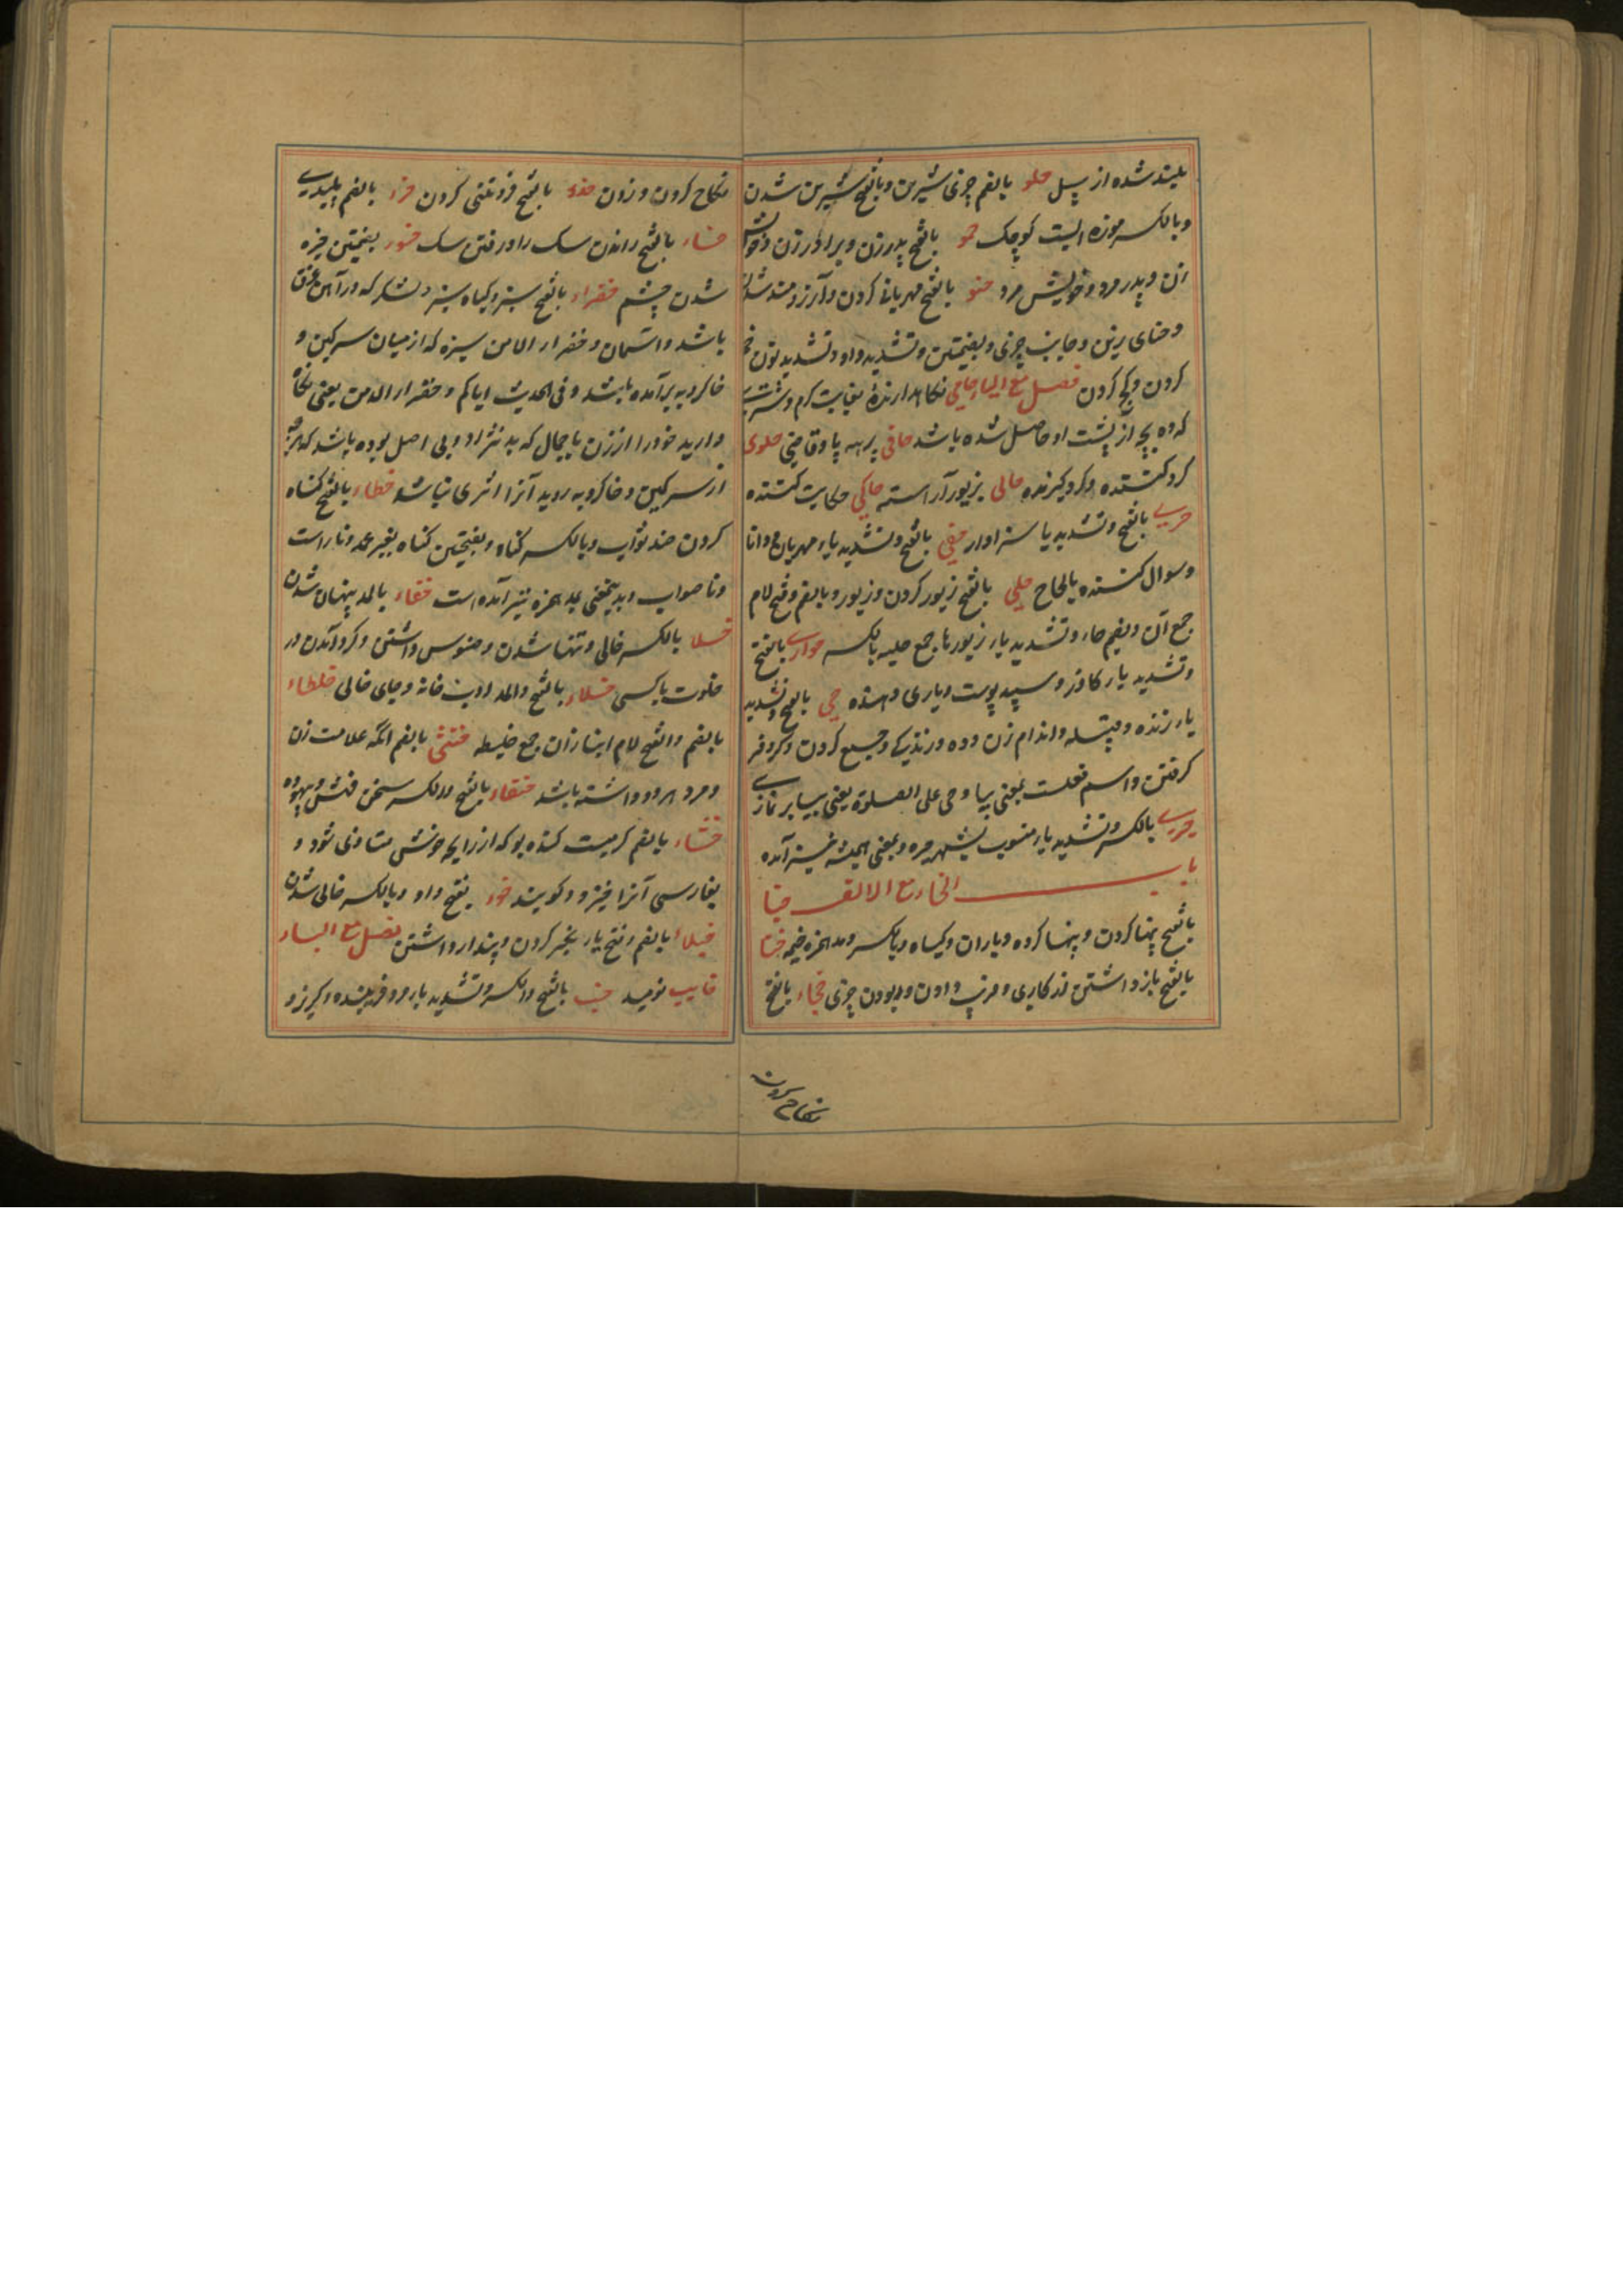 بلند شده از سیل حلو بالضم چیزی شیرین و بالفتح شیرین شدن
و بالکسر موزه ایست کوچک حمو بالفتح پدر زن و برادر زن و خویش
آن و پدر مرد و خویش مرد حنو بالفتح مهربانی کردن و آرزومند شدن
و حنای زین و جانب چیزی و بضمتین و تشدید واو و تشدید نون
کردن و کج کردن فصل مع الیاء حامی نکاهدارنده بغایت کرم و شتری
که ده بچه از پشت او حاصل شده باشد حافی برهنه پا و قاضی حاوی
کرد کننده و کرد کیرنده حالی بزیور آراسته حاکی حکایت کننده
حری بالفتح و تشدید یا سزاوار حفی بالفتح و تشدید یاء مهربان و دانا
و سوال کننده بالحاح حلی بالفتح زیور کردن و زیور و بالضم و فتح لام
جمع آن و بضم حاء و تشدید یاء زیورها جمع حلیه بالکسر حواری بالفتح
و تشدید یاء کاذر و سپید پوست و یاری دهنده حی بالفتح و تشدید
یاء زنده و قبیله و اندام زن و ده و زندیکی و جمیع کردن و کرد و فر
کرفتن و اسم فعلست بمعنی بیا و حی علی الصلوة یعنی بیا بر نماز
حیری بالکسر و تشدید یاء منسوب بشهر حیره و بمعنی همیشه نیز آمده
باب الخاء مع الالف خبا
بالفتح پنهان کردن و پنهان کرده و باران و کیاه و بالکسر و مد همزه خیمه ختا
بالفتح باز داشتن از کاری و فریب دادن و ربودن چیزی خجاء بالفتح
نکاح کردن
نکاح کردن و زدن خذء بالفتح فروتنی کردن خرء بالضم پلیدی
خساء بالفتح راندن سک را و رفتن سک خسور بضمتین خیره
شدن چشم خضراء بالفتح سبز و کیاه سبز و لشکر که در آهن غرق
باشد و آسمان و خضراء الدمن سبزه که از میان سرکین و
خاکروبه برآمده باشد و فی الحدیث ایاکم و خضراء الدمن یعنی نکاه
دارید خود را از زن با جمال که بد نژاد و بی اصل بوده باشد که هرچه
از سرکین و خاکروبه روید آنرا اثری نباشد خطاء بالفتح کناه
کردن ضد ثواب و بالکسر کناه و بفتحتین کناه بغیر عمد و ناراست
و ناصواب و بدینمعنی بمد همزه نیز آمده است خفاء بالمد پنهان شدن
خلا بالکسر خالی و تنها شدن و فسوس داشتن و کرد آمدن در
خلوت باکسی خلاء بالفتح و المد ادب خانه و جای خالی خلطاء
بالضم و الفتح لام انبازان جمع خلیط خنثی بالضم آنکه علامت زن
و مرد هردو داشته باشد خنقاء بالفتح و الکسر سخن فحش و بیهوده
خنفساء بالضم کرمیست کنده بو که از رایحه خوش متاذی شود و
بفارسی آنرا خبزدو کویند خوء بفتح واو و بالکسر خالی شدن
خیلاء بالضم و فتح یاء تکبر کردن و پندار داشتن فصل مع الباء
خایب نومید خب بالفتح و الکسر و تشدید باء مرد فریبنده و کربز و